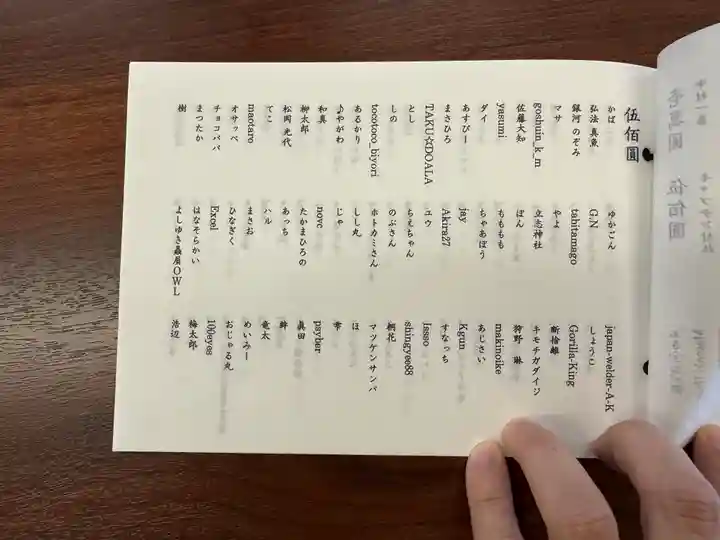 伍佰圓
かば
弘法 真魚
銀河 のぞみ
マサ
goshuin_k_m
佐藤大知
yasumi
ダイ
あすぴー
まさひろ
TAKU☆DOALA
とし
しの
tocotoco_biyori
あるかり
あやがわ
和真
柳太郎
松岡 光代
てこ
maotaro
オサッペ
チョコパパ
まつたか
樹
ゆかりん
G.N
tahitamago
やよ
立志神社
ぽん
ももももも
ちゃあぼう
jay
Akira27
ユウ
ちえちゃん
のぶさん
ホトカミさん
しし丸
じゃ
novc
たかまひろの
あっち
ハル
まさお
ひなぎく
Excel
はなそらかい
よしゆき贔屓OWL
japan-welder-A-K
しょうこ
Gorilla-King
断捨離
キモチガダイジ
狩野 琳
makinoike
あじさい
Kgun
すなっち
Jasso
shingyee88
桐花
マツケンサンバ
ほ
幸
payber
眞田
竜太
めいみー
おじゃる丸
100eyes
梅太郎
浩辺